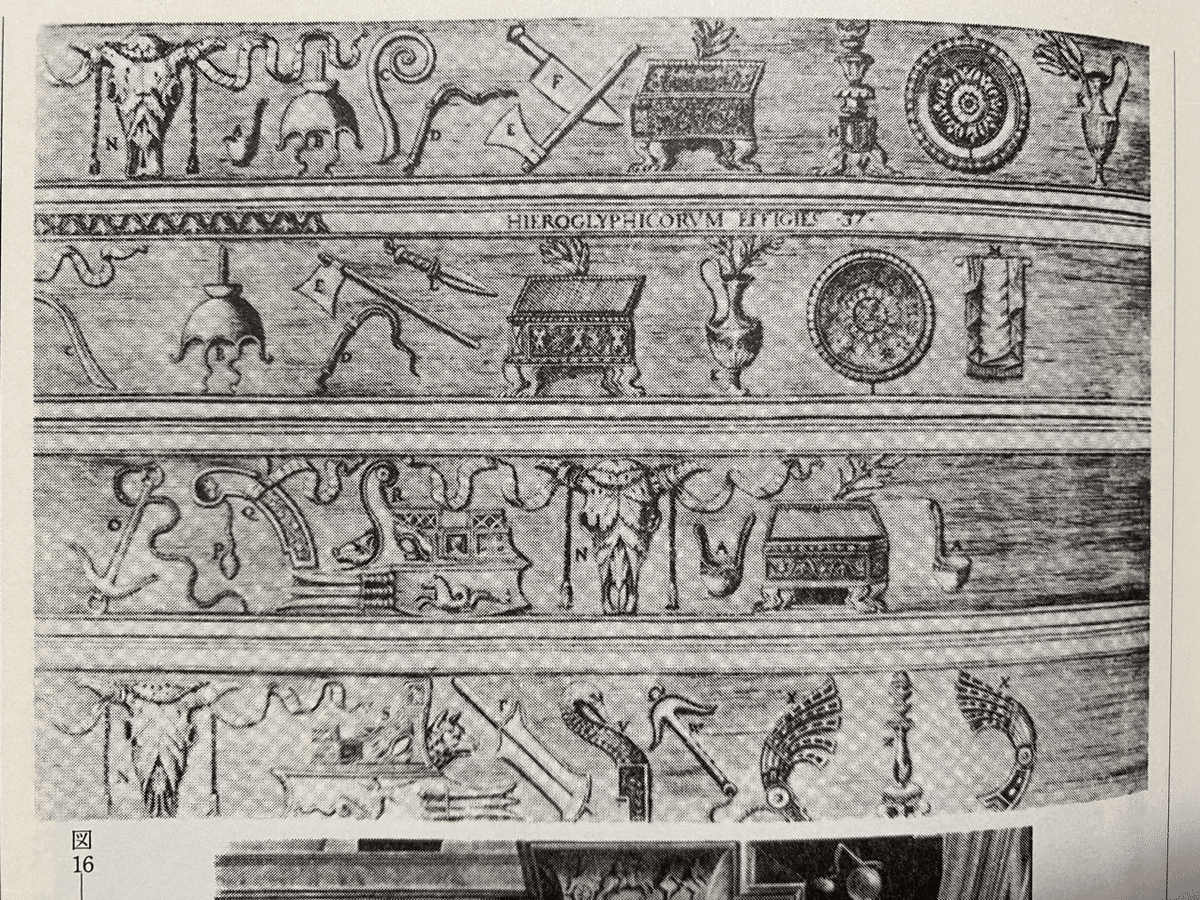 N A B C D E F H K
HIEROGLYPHICORVM EFFIGIES ·37·
C B E D K M
O P Q R N A A
N S V X X
図
16